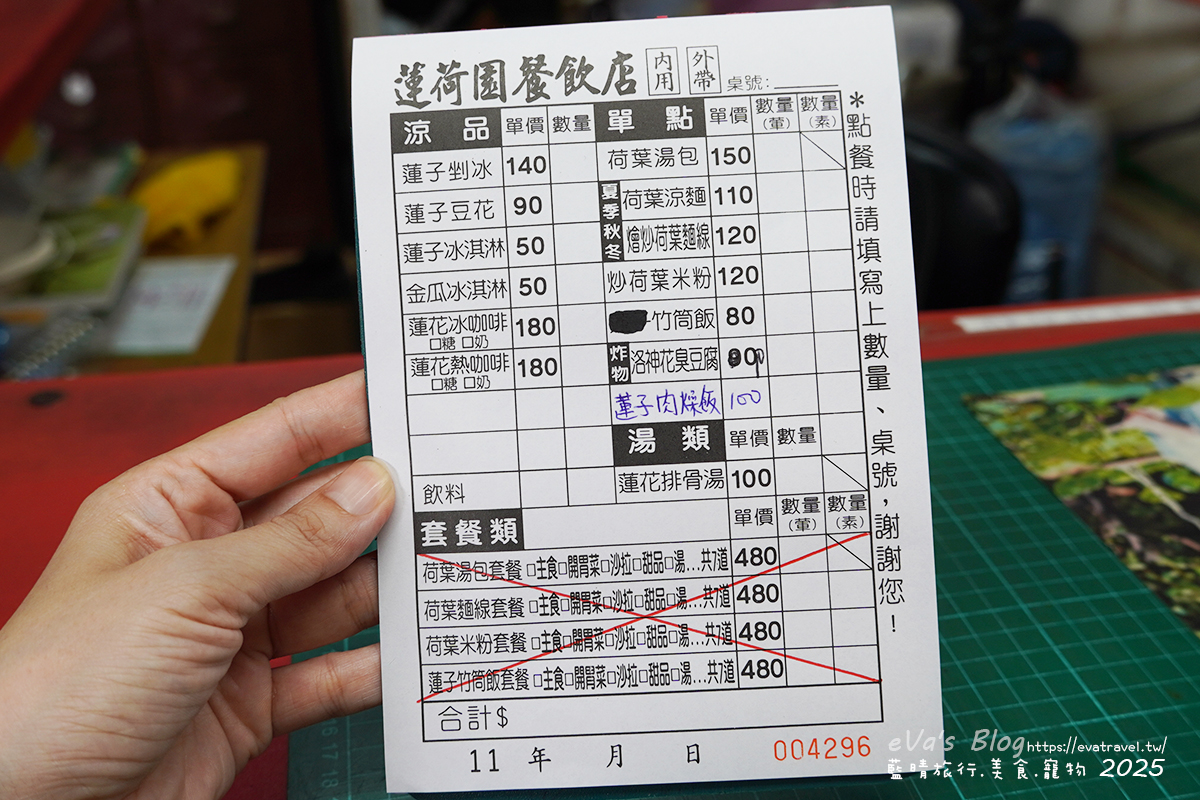 蓮荷園餐飲店 內用 外帶 桌號:
涼品 單價 數量 單點 單價 數量(葷) 數量(素)
蓮子剉冰 140 荷葉湯包 150
蓮子豆花 90 夏季 荷葉涼麵 110
蓮子冰淇淋 50 秋冬 燴炒荷葉麵線 120
金瓜冰淇淋 50 炒荷葉米粉 120
蓮花冰咖啡 □糖 □奶 180 竹筒飯 80
蓮花熱咖啡 □糖 □奶 180 炸物 洛神花臭豆腐 90
蓮子肉燥飯 100
湯類 單價 數量
飲料 蓮花排骨湯 100
套餐類 單價 數量(葷) 數量(素)
荷葉湯包套餐 □主食□開胃菜□沙拉□甜品□湯...共7道 480
荷葉麵線套餐 □主食□開胃菜□沙拉□甜品□湯...共7道 480
荷葉米粉套餐 □主食□開胃菜□沙拉□甜品□湯...共7道 480
蓮子竹筒飯套餐 □主食□開胃菜□沙拉□甜品□湯...共7道 480
合計$
11 年 月 日 004296
*點餐時請填寫上數量、桌號,謝謝您!
eVa's Blog https://evatravel.tw/
藍晴旅行.美食.寵物 2025
16 17 18